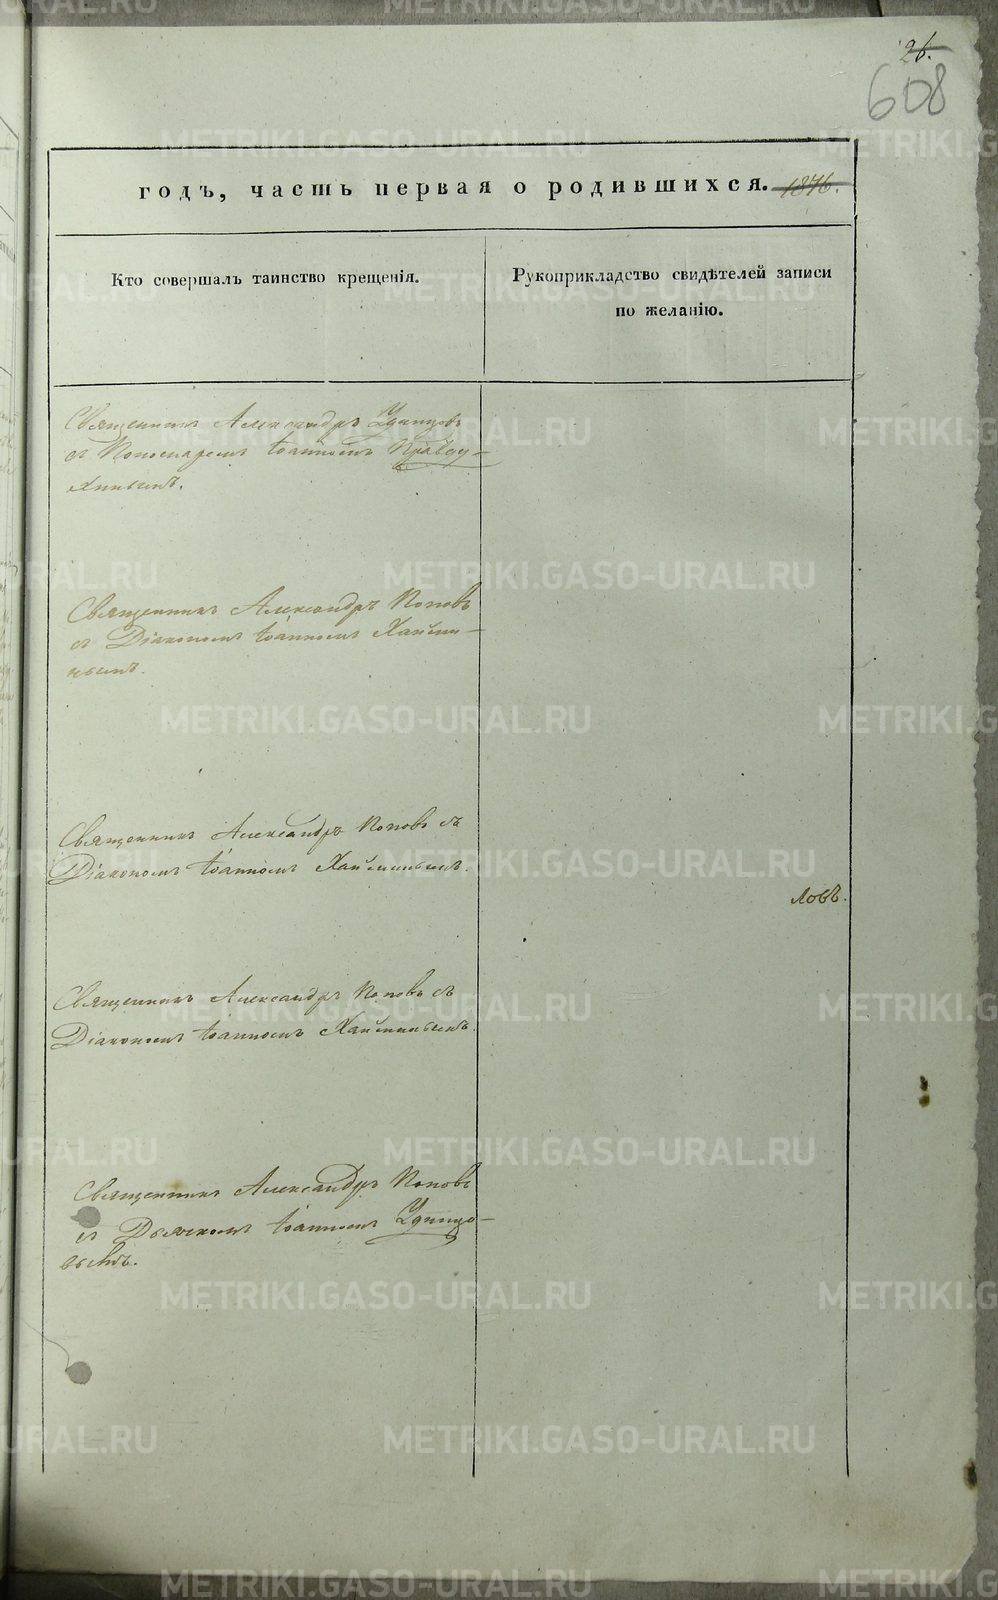 26.
608
годъ, часть первая о родившихся. 1876.
Кто совершалъ таинство крещенія.
Рукоприкладство свидѣтелей записи
по желанію.
Священникъ Александръ Удинцовъ
съ Пономаремъ Іоанномъ Правду-
хинымъ.
Священникъ Александръ Поповъ
съ Діакономъ Іоанномъ Хаймин-
нымъ.
Священникъ Александръ Поповъ съ
Діакономъ Іоанномъ Хайминымъ.
ловъ.
Священникъ Александръ Поповъ съ
Діакономъ Іоанномъ Хайминымъ.
Священникъ Александръ Поповъ
съ Дьячкомъ Іоанномъ Удинцо-
вымъ.
METRIKI.GASO-URAL.RU